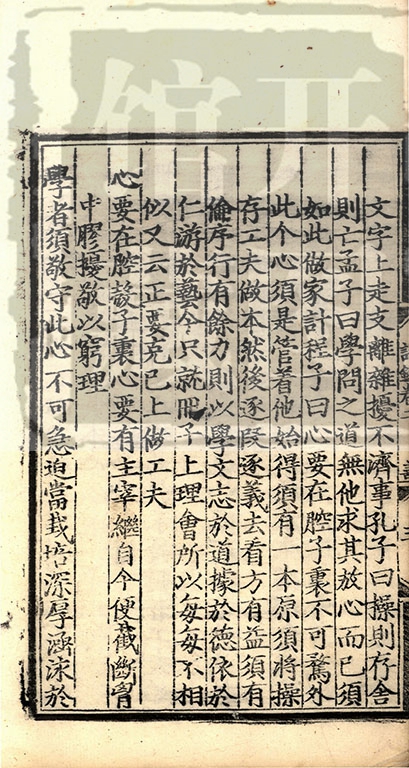 文字上走支離雜擾不濟事孔子曰操則存舍
則亡孟子曰學問之道無他求其放心而已須
如此做家計程子曰心要在腔子裏不可騖外
此个心須是管着他始得須有一本原須將操
存工夫做本然後逐段逐義去看方有益須有
倫序行有餘力則以學文志於道據於德依於
仁游於藝今只就册子上理會所以每每不相
似又云正要克己上做工夫
心要在腔殼子裏心要有主宰繼自今便截斷胷
中膠擾敬以窮理
學者須敬守此心不可急迫當栽培深厚涵泳於